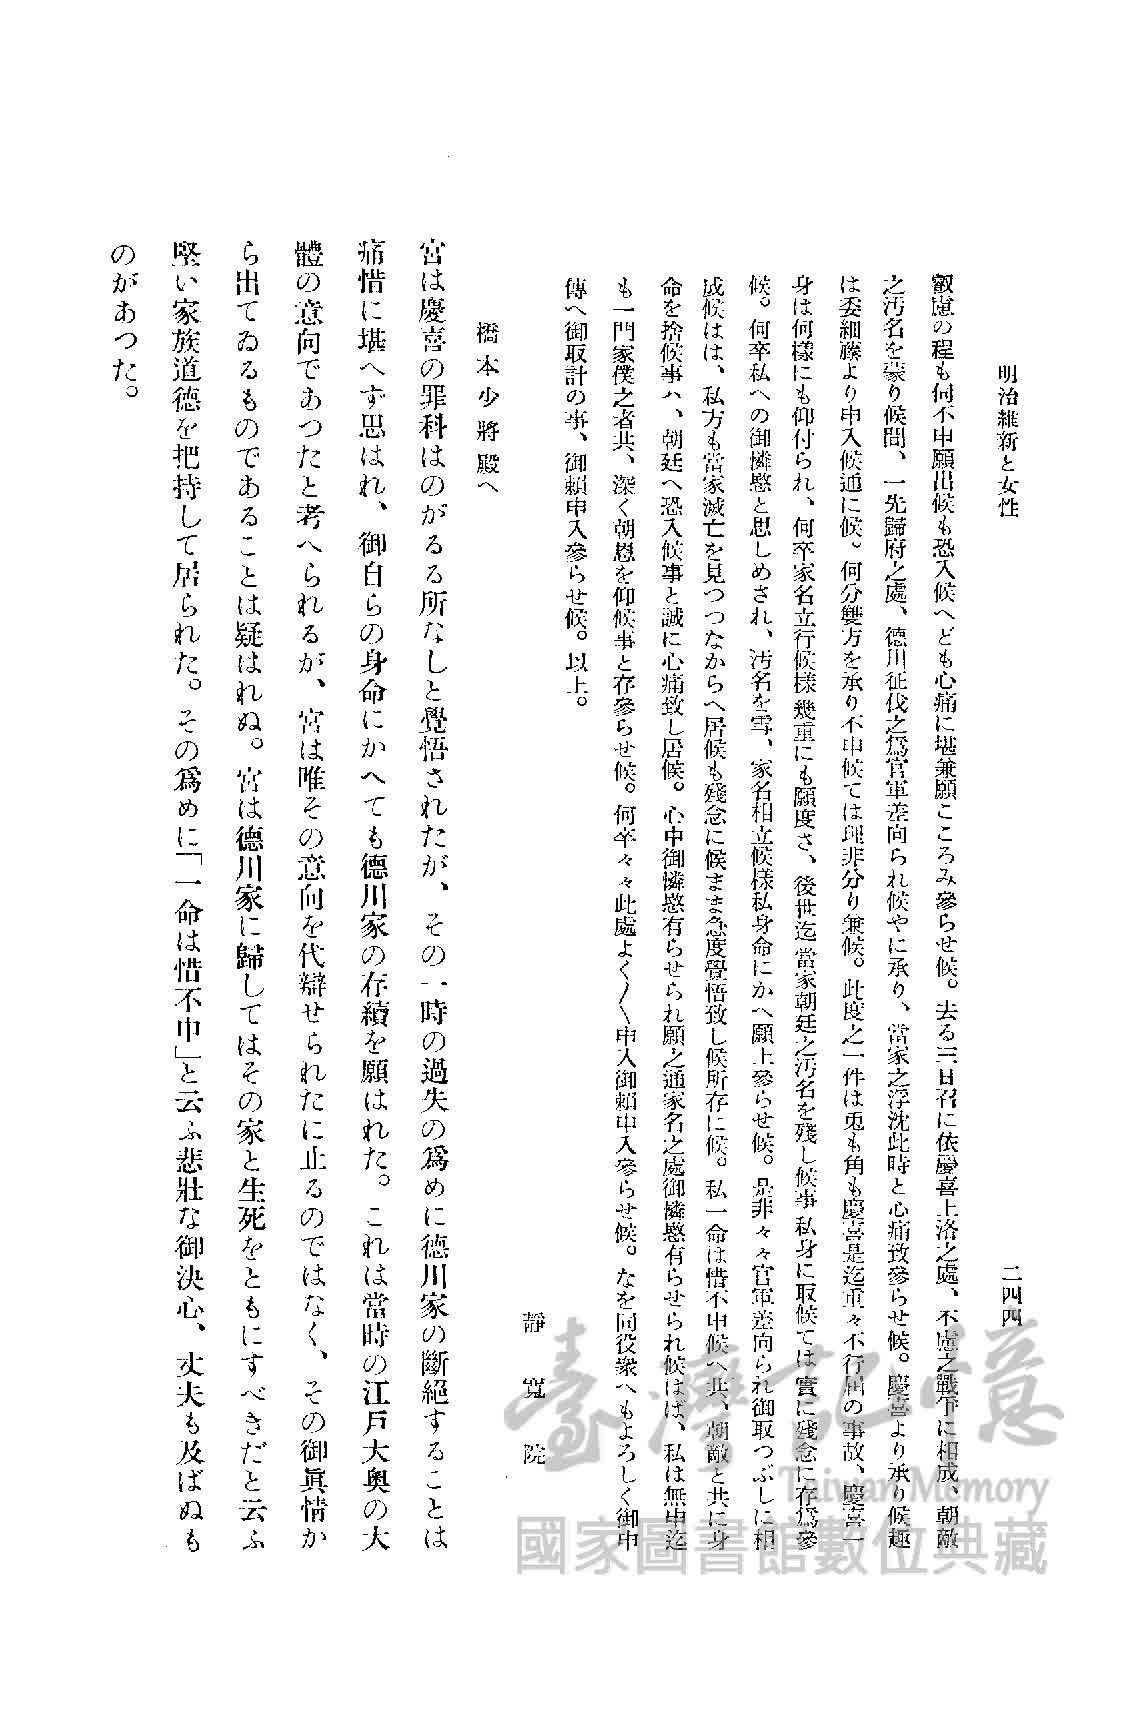 明治維新と女性
二四四
叡慮の程も伺不申願出候も恐入候へども心痛に堪兼願こころみ參らせ候。去る三日召に依慶喜上洛之處、不慮之戰爭に相成、朝敵
之汚名を蒙り候間、一先歸府之處、德川征伐之爲官軍差向られ候やに承り、當家之浮沈此時と心痛致參らせ候。慶喜より承り候趣
は委細藤より申入候通に候。何分雙方を承り不申候ては理非分り兼候。此度之一件は兎も角も慶喜是迄重々不行屆の事故、慶喜一
身は何樣にも仰付られ、何卒家名立行候樣幾重にも願度さ、後世迄當家朝廷之汚名を殘し候事私身に取候ては實に殘念に存爲參
候。何卒私への御憐愍と思しめされ、汚名を雪、家名相立候樣私身命にかへ願上參らせ候。是非々々官軍差向られ御取つぶしに相
成候はは、私方も當家滅亡を見つつなからへ居候も殘念に候まま急度覺悟致し候所存に候。私一命は惜不申候へ共、朝敵と共に身
命を捨候事ハ、朝廷へ恐入候事と誠に心痛致し居候。心中御憐愍有らせられ願之通家名之處御憐愍有らせられ候はば、私は無申迄
も一門家僕之者共、深く朝恩を仰候事と存參らせ候。何卒々々此處よく〱申入御賴申入參らせ候。なを同役衆へもよろしく御申
傳へ御取計の事、御賴申入參らせ候。以上。
靜寬院
橋本少將殿へ
宮は慶喜の罪科はのがるる所なしと覺悟されたが、その一時の過失の爲めに德川家の斷絕することは
痛惜に堪へず思はれ、御自らの身命にかへても德川家の存續を願はれた。これは當時の江戶大奧の大
體の意向であつたと考へられるが、宮は唯その意向を代辯せられたに止るのではなく、その御眞情か
ら出てゐるものであることは疑はれぬ。宮は德川家に歸してはその家と生死をともにすべきだと云ふ
堅い家族道德を把持して居られた。その爲めに「一命は惜不申」と云ふ悲壯な御決心、丈夫も及ばぬも
のがあつた。
臺灣記憶
Taiwan Memory
國家圖書館數位典藏